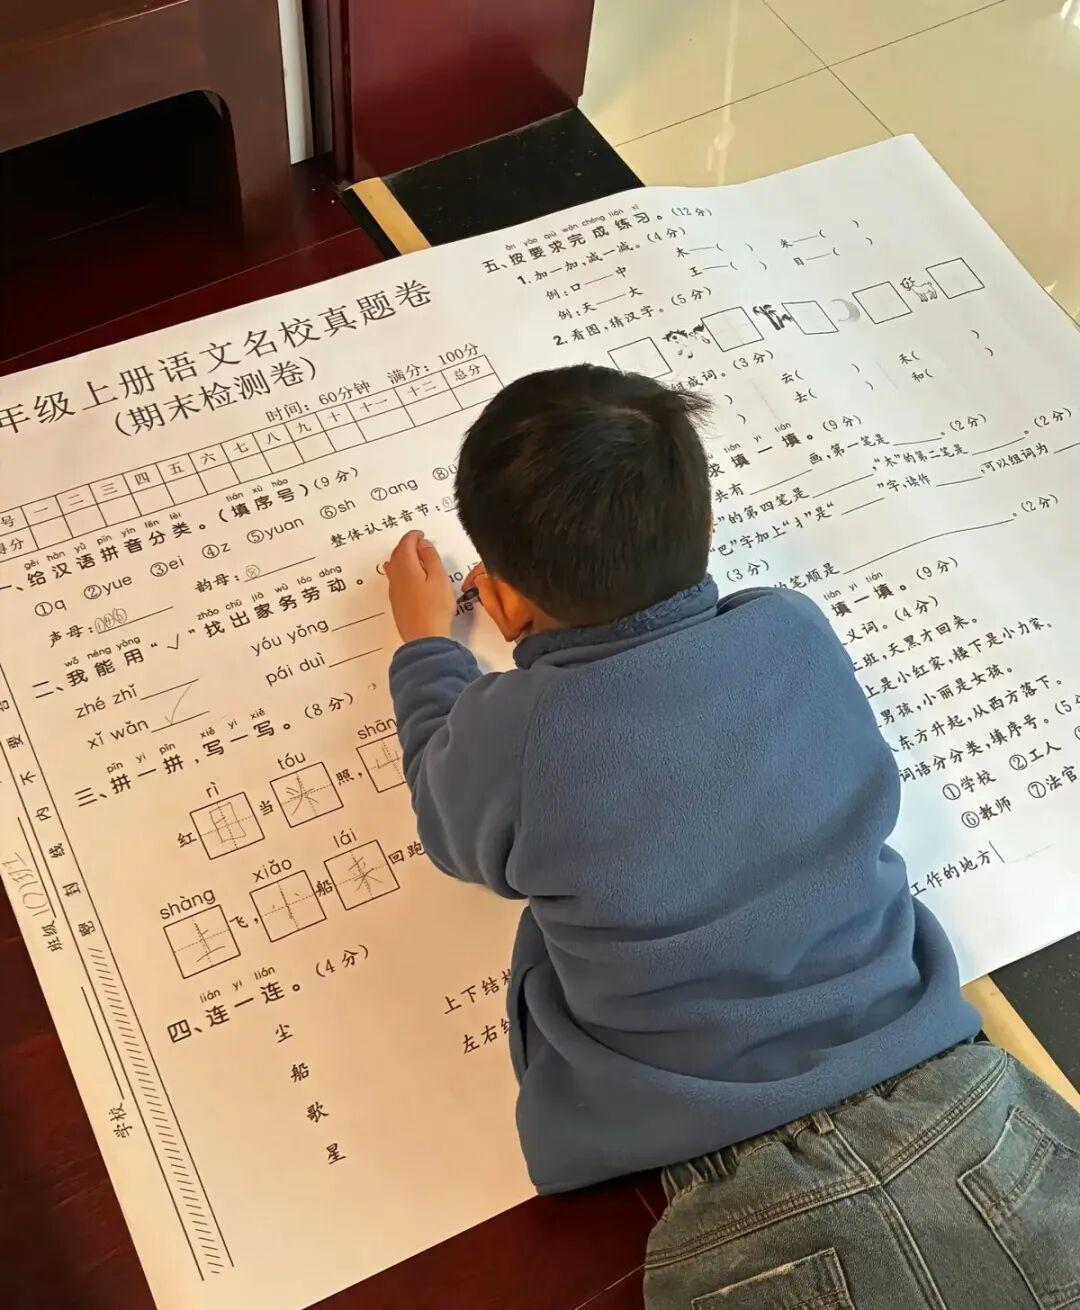 年级上册语文名校真题卷
(期末检测卷)
时间：60分钟 满分：100分
号 一 二 三 四 五 六 七 八 九 十 十一 十二 总分
得分
gěi hàn yǔ pīn yīn fēn lèi tián xù hào
一、给汉语拼音分类。(填序号)(9分)
①q ②yue ③ei ④z ⑤yuan ⑥sh ⑦ang ⑧
声母： 韵母： 整体认读音节：
wǒ néng yòng zhǎo chū jiā wù láo dòng
二、我能用“√”找出家务劳动。
zhé zhǐ yóu yǒng
xǐ wǎn √ pái duì
pīn yi pīn xiě yi xiě
三、拼一拼，写一写。(8分)
rì tóu shān
红日当头照，
shàng xiǎo lái
上飞，小船来回跑
lián yi lián
四、连一连。(4分)
尘
船
歌
星
上下结
左右
班级
学校
密封线内不要
àn yāo qiú wán chéng liàn xí
五、按要求完成练习。(12分)
1.加一加，减一减。(4分)
例：口——中 木——( ) 米——( )
例：天——大 王——( ) 日——( )
2.看图，猜汉字。(5分)
组成词。(3分)
云( ) 禾( )
去( ) 和(
tián yi tián
求填一填。(9分)
共有 画，第一笔是 。(2分)
的第四笔是 ，“木”的第二笔是 。(2分)
“巴”字加上“扌”是“ ”字，读作 ，可以组词为
的笔顺是 。(2分)
(3分)
tián yi tián
填一填。(9分)
义词。(4分)
上班，天黑才回来。
上是小红家，楼下是小力家。
男孩，小丽是女孩。
东方升起，从西方落下。
词语分分类，填序号。(5分
①学校 ②工人
⑥教师 ⑦法官
工作的地方